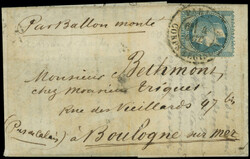 Par Ballon monté
Monsieur Bethmont,
chez Monsieur Criquès
Rue des Vieillards 47 bis
(Pas de Calais) à Boulogne sur mer